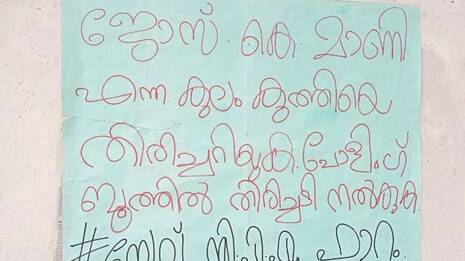 ജോസ് . കെ . മാണി
എന്ന കുലം കുത്തിയെ
തിരിച്ചറിയുക. പോളിംഗ്
ബൂത്തിൽ തിരിച്ചടി നൽകുക.
#സേവ് സി.പി.എം ഫോറം.